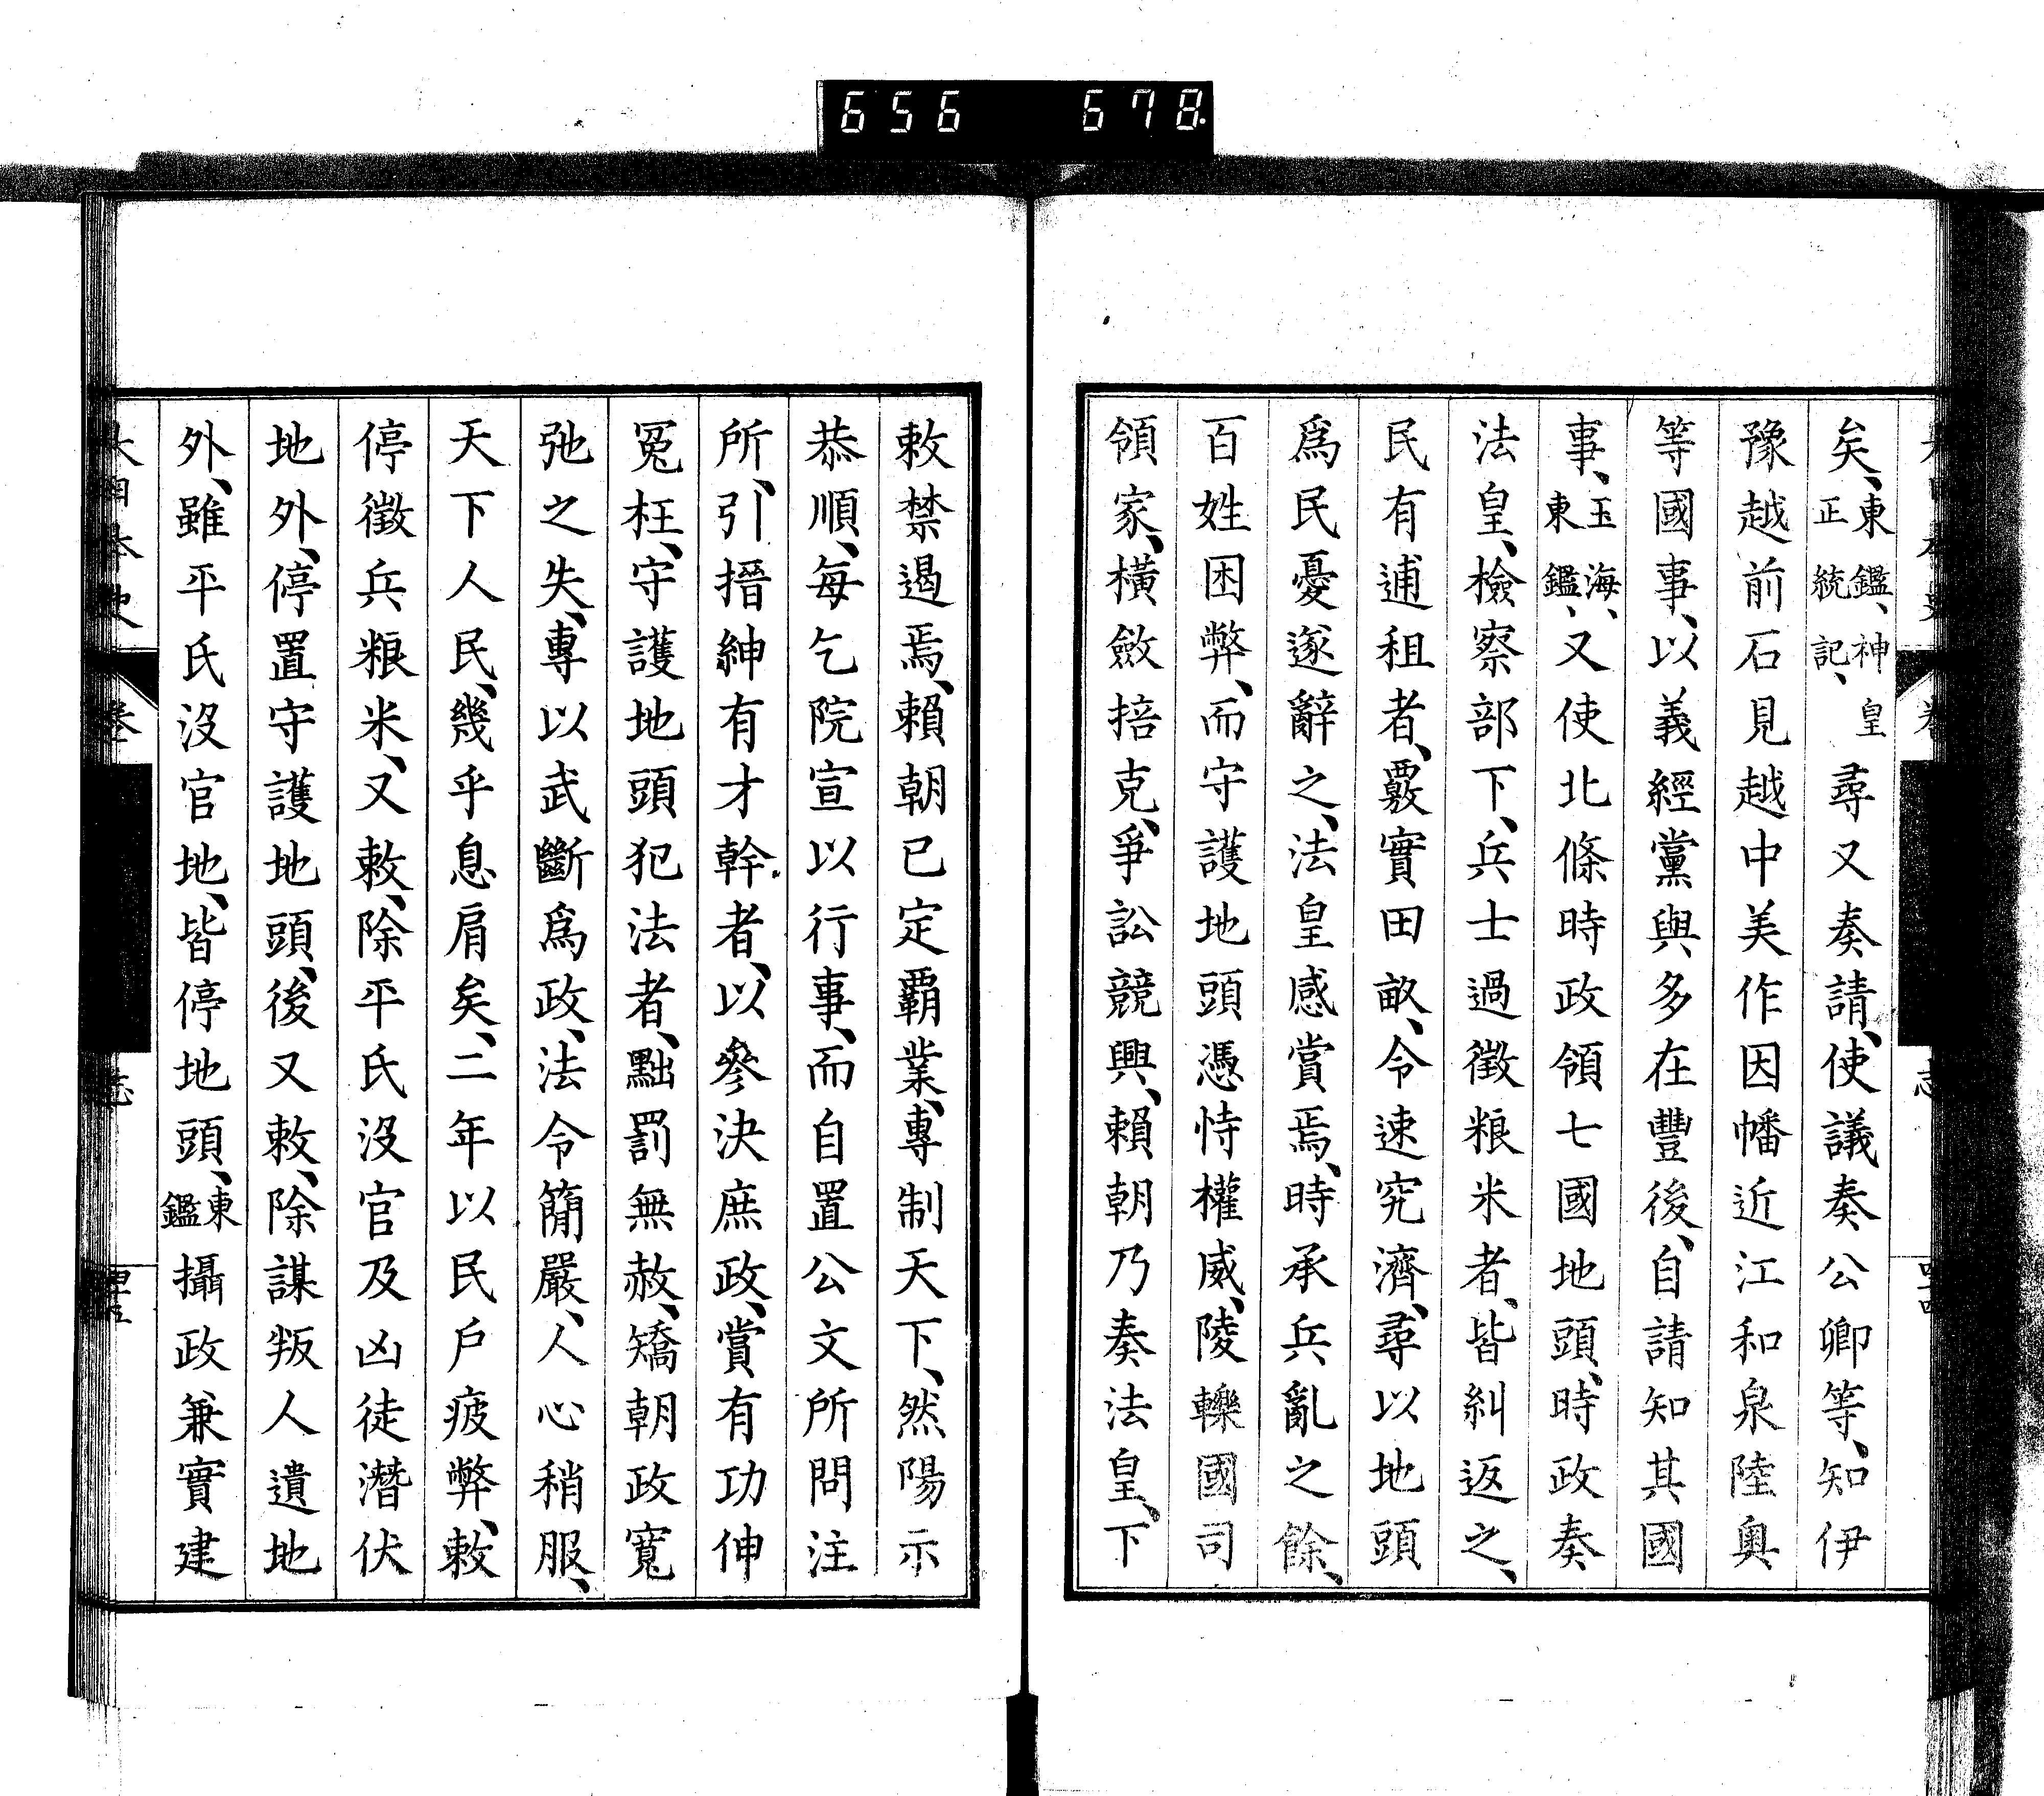 656 678
矣、東鑑、神皇正統記、尋又奏請、使議奏公卿等、知伊
豫越前石見越中美作因幡近江和泉陸奧
等國事、以義經黨與、多在豐後、自請知其國
事、玉海、東鑑、又使北條時政領七國地頭、時政奏
法皇、檢察部下、兵士過徵粮米者、皆糾返之、
民有逋租者、覈實田畝、令速究濟、尋以地頭
爲民憂遂辭之、法皇感賞焉、時承兵亂之餘、
百姓困弊、而守護地頭憑恃權威、陵轢國司
領家、橫斂掊克、爭訟競興、賴朝乃奏法皇、下
敕禁遏焉、賴朝已定覇業、專制天下、然陽示
恭順、每乞院宣以行事、而自置公文所問注
所、引搢紳有才幹者、以參決庶政、賞有功伸
冤枉、守護地頭犯法者、黜罰無赦、矯朝政寬
弛之失、專以武斷爲政、法令簡嚴、人心稍服、
天下人民、幾乎息肩矣、二年以民戶疲弊、敕
停徵兵粮米、又敕、除平氏沒官及凶徒潛伏
地外、停置守護地頭、後又敕、除謀叛人遺地
外、雖平氏沒官地、皆停地頭、東鑑攝政兼實建